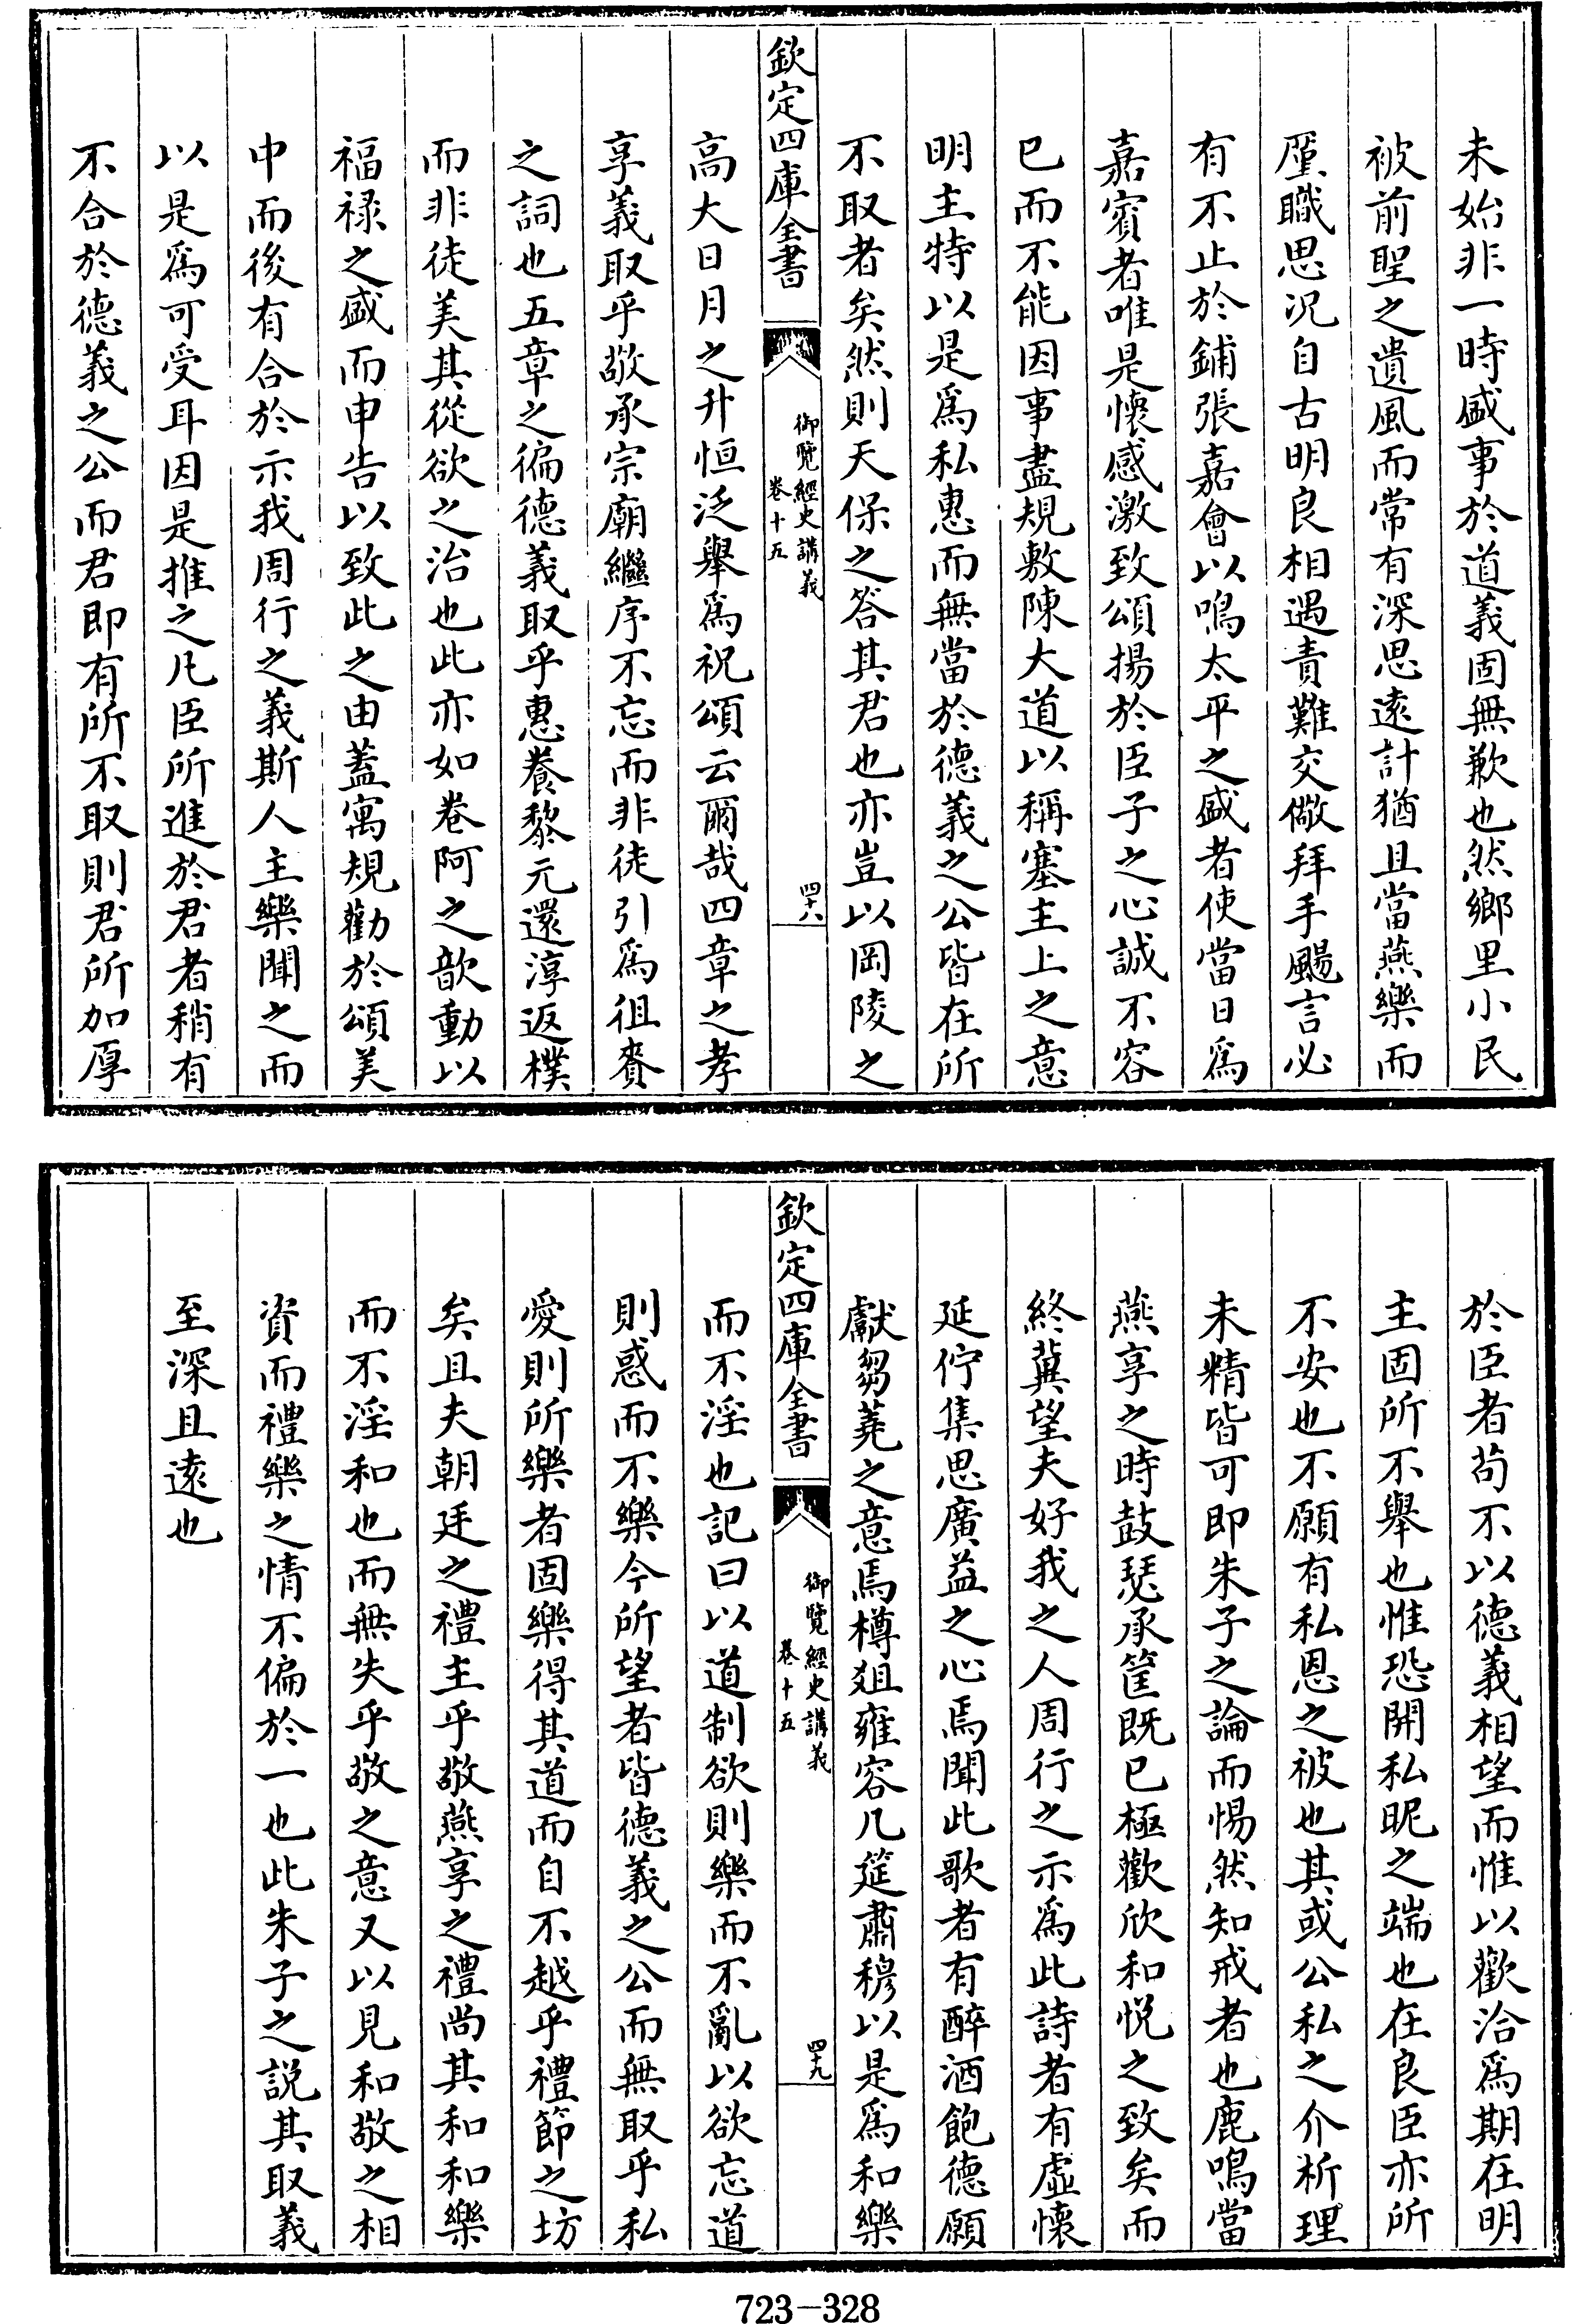 未始非一時盛事於道義固無歉也然鄉里小民
被前聖之遺風而常有深思遠計猶且當燕樂而
厪職思况自古明良相遇責難交儆拜手颺言必
有不止於鋪張嘉會以鳴太平之盛者使當日爲
嘉賓者唯是懷感激致頌揚於臣子之心誠不容
已而不能因事盡規敷陳大道以稱塞主上之意
明主特以是爲私惠而無當於德義之公皆在所
不取者矣然則天保之答其君也亦豈以岡陵之
欽定四庫全書
御覽經史講義
卷十五
四十八
高大日月之升恒泛舉爲祝頌云爾哉四章之孝
享義取乎敬承宗廟繼序不忘而非徒引爲徂賚
之詞也五章之徧德義取乎惠養黎元還淳返樸
而非徒美其從欲之治也此亦如卷阿之歆動以
福祿之盛而申告以致此之由蓋寓規勸於頌美
中而後有合於示我周行之義斯人主樂聞之而
以是爲可受耳因是推之凡臣所進於君者稍有
不合於德義之公而君即有所不取則君所加厚
於臣者苟不以德義相望而惟以歡洽爲期在明
主固所不舉也惟恐開私昵之端也在良臣亦所
不安也不願有私恩之被也其或公私之介析理
未精皆可即朱子之論而惕然知戒者也鹿鳴當
燕享之時鼓瑟承筐既已極歡欣和悅之致矣而
終冀望夫好我之人周行之示爲此詩者有虛懷
延佇集思廣益之心焉聞此歌者有醉酒飽德願
獻芻蕘之意焉樽俎雍容几筵肅穆以是爲和樂
欽定四庫全書
御覽經史講義
卷十五
四十九
而不淫也記曰以道制欲則樂而不亂以欲忘道
則惑而不樂今所望者皆德義之公而無取乎私
愛則所樂者固樂得其道而自不越乎禮節之坊
矣且夫朝廷之禮主乎敬燕享之禮尚其和和樂
而不淫和也而無失乎敬之意又以見和敬之相
資而禮樂之情不偏於一也此朱子之說其取義
至深且遠也
723-328